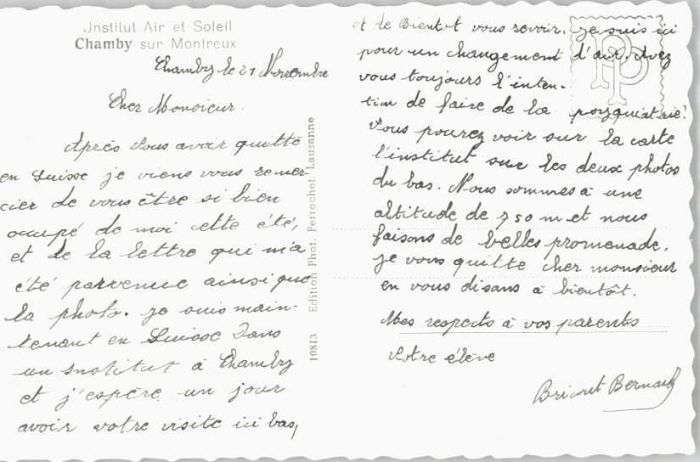 Institut Air et Soleil
Chamby sur Montreux
Chamby le 21 Novembre
Cher Monsieur
Après vous avoir quitté
en Suisse je viens vous remer-
cier de vous être si bien
occupé de moi cette été,
et de la lettre qui m'a
été parvenue ainsi que
la photo. je suis main-
tenant en Suisse dans
un institut à Chamby
et j'espère un jour
avoir votre visite ici bas,
10813 Edition Phot. Perrochet Lausanne
et de Bientot vous revoir. je suis ici
pour un changement d'air. Avez
vous toujours l'inten-
tion de faire de la psyquiatrie?
Vous pourez voir sur la carte
l'institut sur les deux photos
du bas. Nous sommes à une
altitude de 750 m et nous
faisons de belles promenade.
je vous quitte cher monsieur
en vous disans à bientôt.
Mes respects à vos parents
votre élève
Bernard
PP